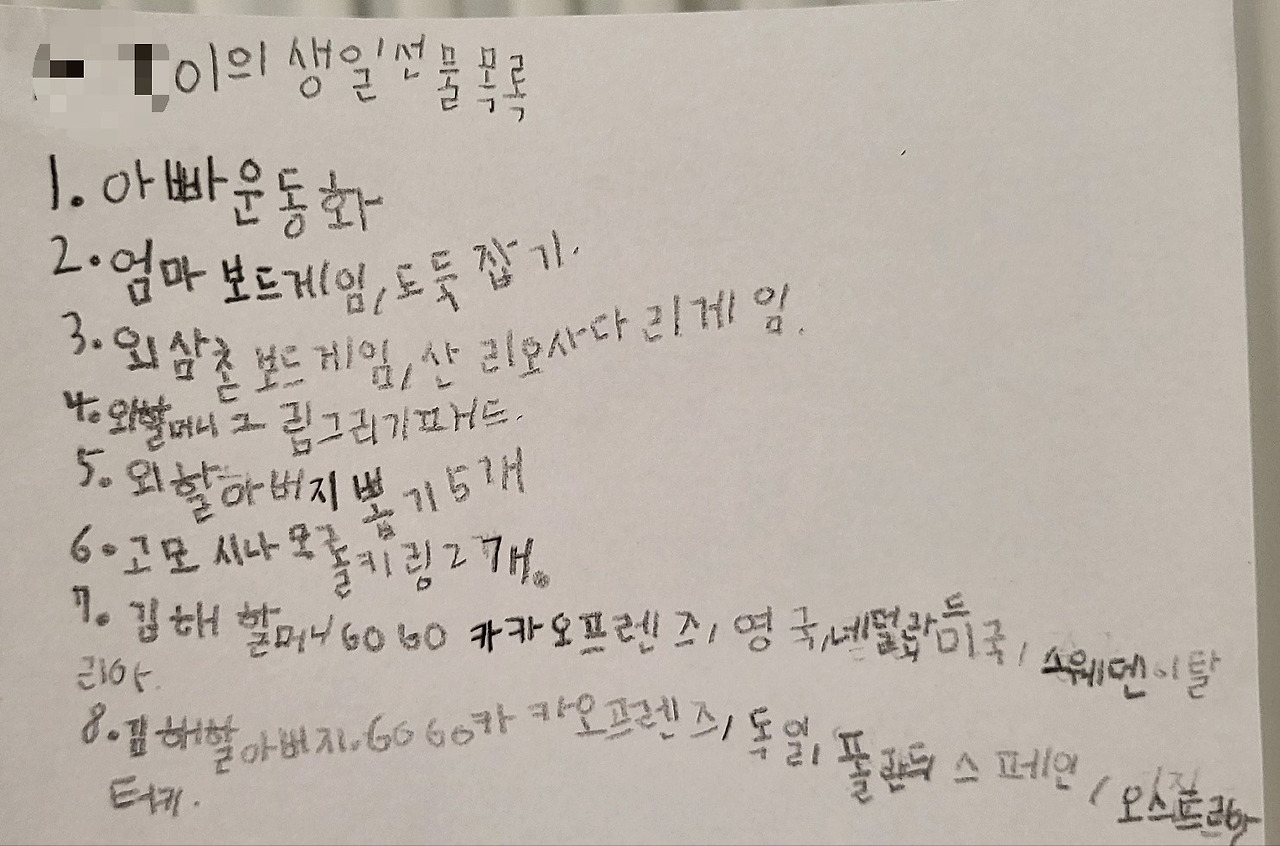 이의 생일선물목록
1. 아빠운동화
2. 엄마 보드게임, 도둑잡기.
3. 외삼촌 보드게임, 산리오사다리게임.
4. 외할머니 그림그리기패드.
5. 외할아버지뽑기5개
6. 고모 시나모롤키링2개.
7. 김해할머니GOGO카카오프렌즈, 영국, 네덜란드 미국, 스웨덴 이탈
리아.
8. 김해할아버지.GOGO카카오프렌즈, 독일, 폴란드 스페인,
터키.